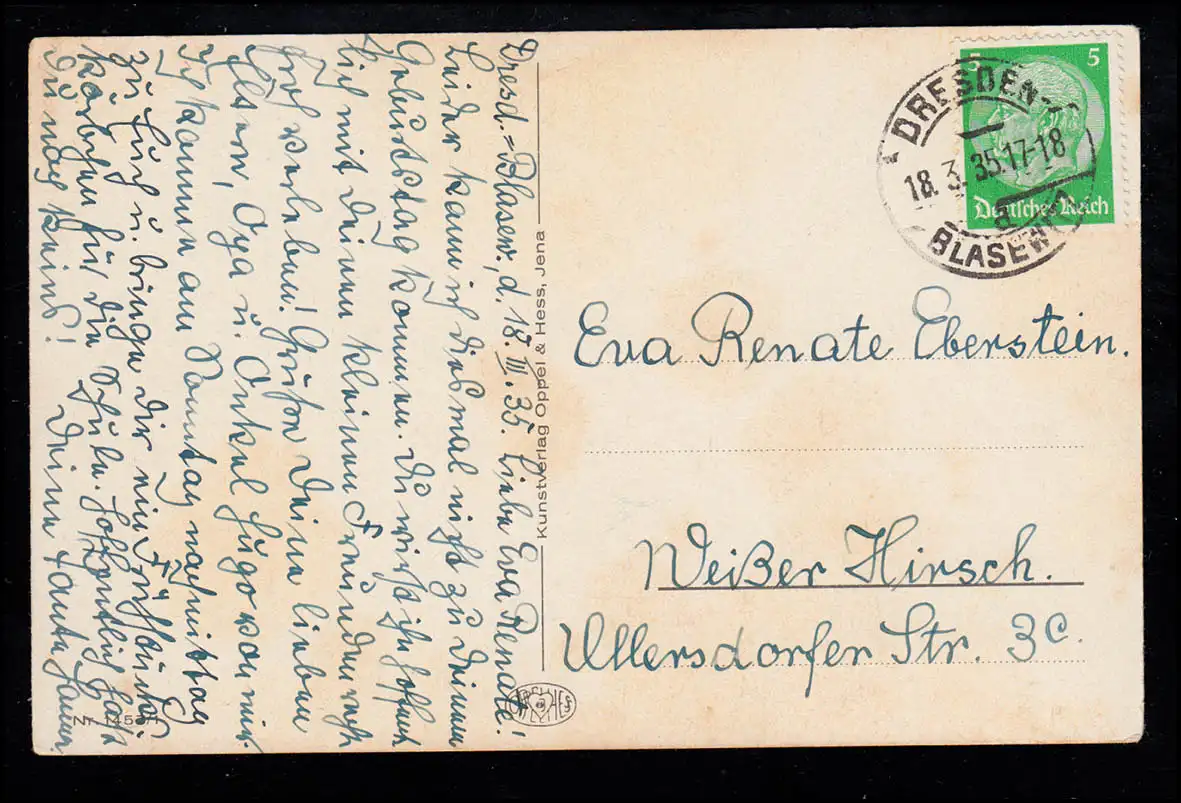 Dresd.-Blasew., d. 18. III. 35. Liebe Eva Renate!
Leider kann ich diesmal nicht zu Deinem
Geburtstag kommen. Du wirst ihn hoffent
lich mit Deinen kleinen Freunden recht
froh verleben! Grüße Deine lieben
Eltern, Opa u. Onkel Hugo von mir.
Ich komme am Sonntag nachmittag
zu Euch u. bringe dir ein Frühstücks
körbchen für die Schule. Hoffentlich hast
Du noch keins! Deine Tante
Nr. 1453/1
Kunstverlag Oppel & Hess, Jena
5 5
Deutsches Reich
DRESDEN-
18.3.35.17-18
a
BLASEWITZ
Eva Renate Eberstein.
Weißer Hirsch.
Ullersdorfer Str. 3c.